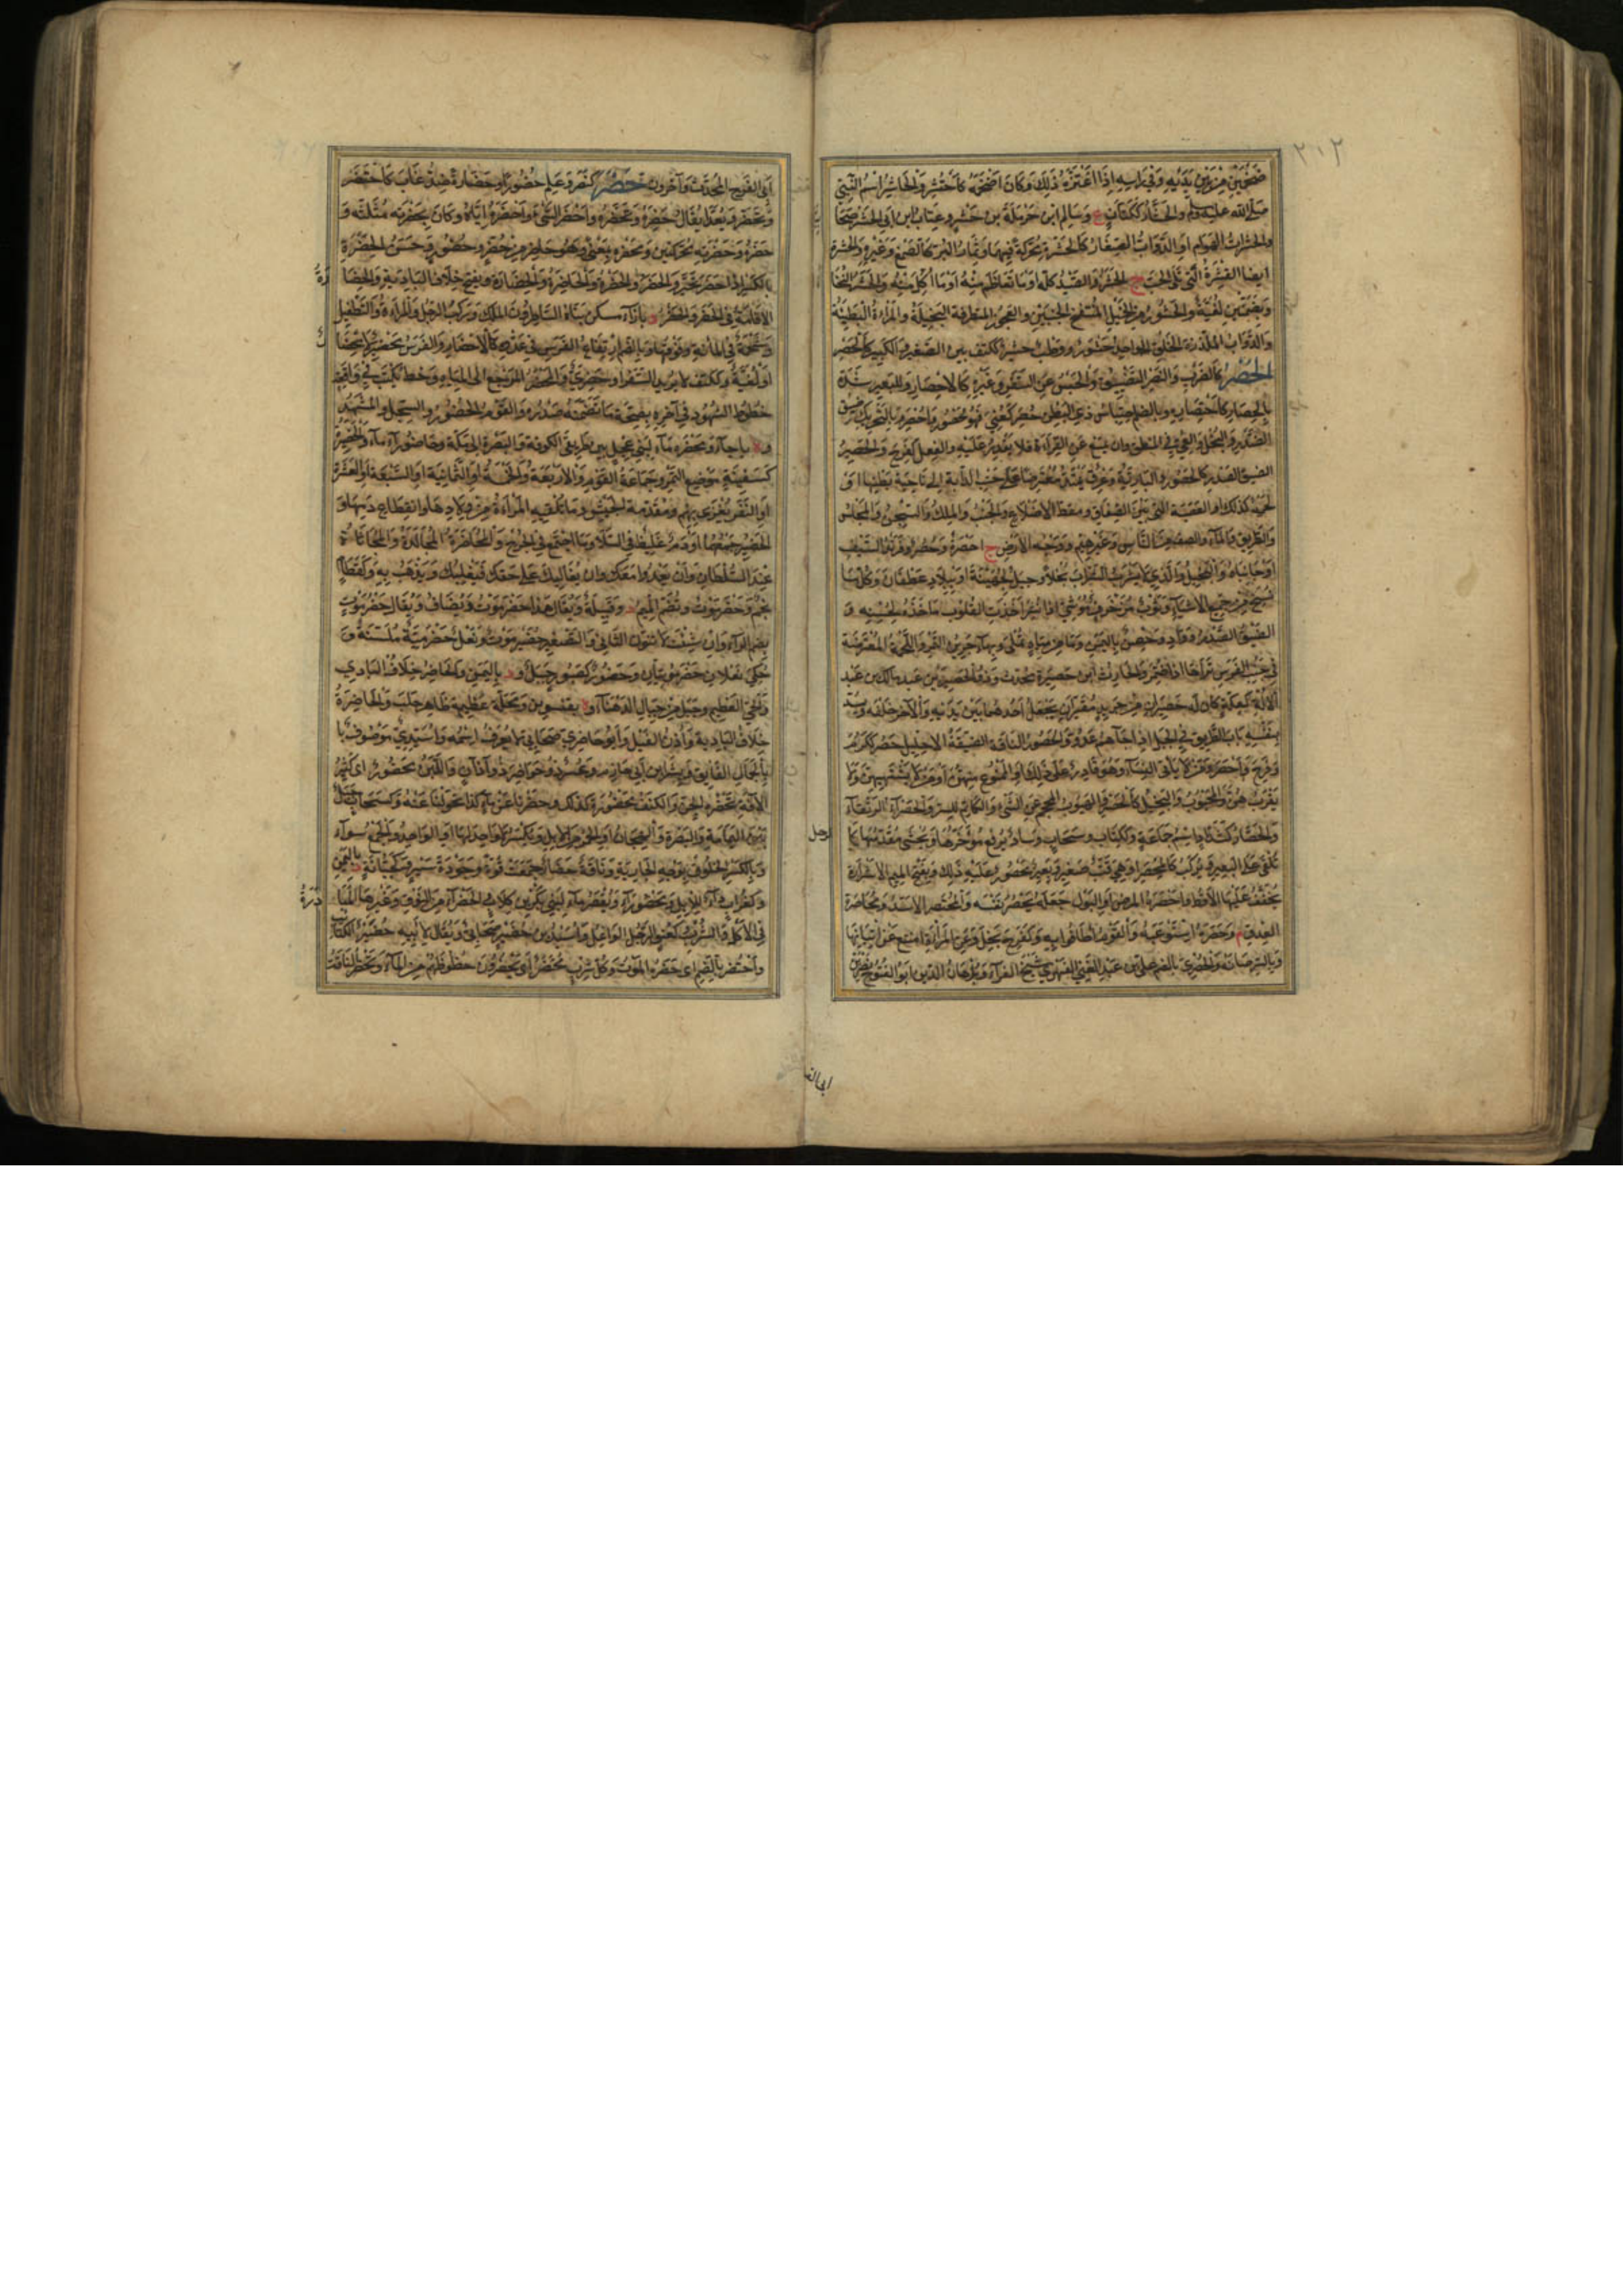 ٢١٢
صلى الله عليه وسلم والحشار ككتان ع وسالم ابن حرملة بن حشر وعتاب ابن ابي الحشر صحا
والحشرات الهوام او الدواب الصغار كالحشرة محركة فيهما وثمار البر كالصمغ وغيره والحشرة
ايضا القشرة التي تلي الحب ج الحشر والصيد كله او ما تعاظم منه او ما اكل منه والحشر النخا
وبضمتين لغية والحشور من الخيل المنتفخ الجنبين والعجوز المتظرفة البخيلة والمراة البطينة
والدواب الملززة الخلق الواحد حشورة ووطب حشر ككتف بين الصغير والكبير
الحصر كالضرب والنصر التضييق والحبس عن السفر وغيره كالاحصار وللبعير شده
بالحصار كاحتصاره وبالضم احتباس ذي البطن حصر كعني فهو محصور واحصر وبالتحريك ضيق
الصدر والبخل والعي في المنطق وان يمتنع عن القراءة فلا يقدر عليه والفعل كفرح والحصير
الضيق الصدر كالحصور والبارية وعرق يمتد معترضا على جنب الدابة الى ناحية بطنها او
لحمة كذلك او العصبة التي بين الصفاق ومقط الاضلاع والجنب والملك والسجن والمجلس
والطريق والماء والصف من الناس وغيرهم ووجه الارض ج احصرة وحصر وفرند السيف
او جانباه والبخيل والذي لا يشرب الشراب بخلا وجبل لجهينة او ببلاد غطفان وكل ما
نسج من جميع الاشياء وثوب مزخرف موشى اذا نشر اخذت القلوب ماخذه لحسنه و
الضيق الصدر وواد وحصن باليمن وماء من مياه نملى وبهاء جرين التمر واللحمة المعترضة
في جنب الفرس تراها اذا ضمر والحارث ابن حصيرة محدث وذو الحصيرين عبد مالك بن عبد
الالة كعلة كان له حصيران من جريد مقيران يجعل احدهما بين يديه والآخر خلفه ويسد
بنفسه باب الطريق في الجبل اذا جاءهم عدو والحصور الناقة الضيقة الاحليل حصر ككرم
وفرح واحصر ومن لا ياتي النساء وهو قادر على ذلك او الممنوع منهن او من لا يشتهيهن ولا
يقربهن والمجبوب والبخيل كالحصر والهيوب المحجم عن الشيء والكاتم للسر والحصراء الرتقاء
والحصار ككتان اسم جماعة وككتاب وسحاب وساد يرفع مؤخرها ويحشى مقدمها كا
لرحل
يلقى على البعير ويركب كالمحصرة او هي قتب صغير وبعير محصور عليه ذلك وبفتح الميم الاشرارة
يجفف عليها الاقط واحصره المرض او البول جعله يحصر نفسه والمحتصر الاسد ومحاصرة
العدو م وحصره استوعبه والقوم اطافوا به وكفرح بخل وعن المراة امتنع عن اتيانها
وبالسر صانه والحصري بالضم علي بن عبد الغني الفهري شيخ القراء وبرهان الدين ابو الفتوح نصر بن
ابي الفرج المحدث وآخرون حضر كنصر وعلم حضورا وحضارة ضد غاب كاحتضر
وتحضر ويعدى يقال حضره وتحضره واحضر الشيء واحضره اياه وكان بحضرته مثلثة و
حضره وحضرته محركتين ومحضره بمعنى وهو حاضر من حضر وحضور وحسن الحضرة
بالكسر اذا حضر بخير والحضر والحضرة والحاضرة والحضارة ويفتح خلاف البادية والحضا
رة
الاقامة في الحضر والحضر د بازاء مسكن بناه الساطرون الملك وركب الرجل والمراة والتطفيل
وشحمة في المانة وفوقها وبالضم ارتفاع الفرس في عدوه كالاحضار والفرس محضير لا محضا
او لغية وككتف لا يريد السفر او حضري والمحضر المرجع الى المياه وخط يكتب في واقعة
خطوط الشهود في آخره بصحة ما تضمنه صدره والقوم الحضور والسجل والمشهد
و باجاء ومحضرة ماء لبني عجل بين طريقي الكوفة والبصرة الى مكة وحاضوراء ماء والحضيرة
كسفينة موضع التمر وجماعة القوم والاربعة والخمسة او الثمانية او السبعة او العشرة
او النفر يغزى بهم ومقدمة الجيش وما تلقيه المراة من ولادها وانقطاع دمها و
الحضير جمعها او دم غليظ في السلا وما اجتمع في الجرح والمحاضرة المجالدة والمجاثاة
عند السلطان وان يعدو معك وان يغالبك على حقك فيغلبك ويذهب به وكقطام
نجم وحضرموت وتضم الميم د وقبيلة ويقال هذا حضرموت ويضاف ويقال حضرموت
بضم الراء وان شئت لا تنون الثاني والتصغير حضيرموت ونعل حضرمية ملسنة و
حكي نعلان حضرموتيان وحضور كصبور جبل و د باليمن والحاضر خلاف البادي
والحي العظيم وجبل من جبال الدهناء و بقنسرين ومحلة عظيمة ظاهر حلب والحاضرة
خلاف البادية واذن الفيل وابو حاضر صحابي لا يعرف اسمه واسيدي موصوف با
بالجمال الفائق وبشر ابن ابي حازم وعس ذو حواضر ذو آذان واللبن محضور اي كثير
الآفة تحضره الجن والكنف محضورة كذلك وحضرنا عن ماء كذا تحولنا عنه وكسحاب جبل
بين اليمامة والبصرة والهجان او الحمر من الابل ويكسر لا واحد لها او الواحد والجمع سواء
وبالكسر الخلوق بوجه الجارية وناقة حضار جمعت قوة وجودة سير وكجبانة د باليمن
وكغراب داء للابل ومحضوراء ويقصر ماء لبني ابي بكر بن كلاب والحضراء من النوق وغيرها المبا
درة
في الاكل والشرب كعنق الرجل الواغل واسيد بن حضير صحابي ويقال لابيه حضير الكتائب
واحتضر بالضم اي حضره الموت وكل شرب محتضر اي يحضرون حظوظهم من الماء وتحضر الناقة